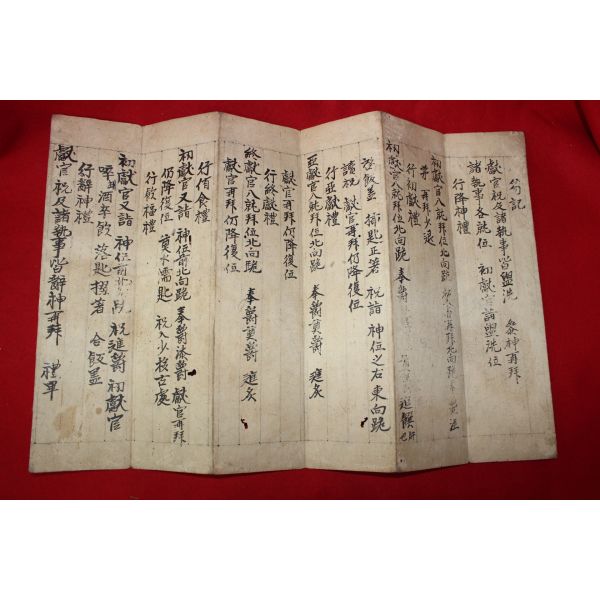 笏記
獻官祝及諸執事皆盥洗 參神再拜
諸執事各就位 初獻官詣盥洗位
行降神禮
初獻官入就拜位北向跪
再拜少退
行初獻禮
初獻官入就拜位北向跪 奉爵 進饌
啓飯盖 揷匙正箸 祝詣 神位之右東向跪
讀祝 獻官再拜仍降復位
行亞獻禮
亞獻官入就拜位北向跪 奉爵奠爵 進炙
獻官再拜仍降復位
行終獻禮
終獻官入就拜位北向跪 奉爵奠爵 進炙
獻官再拜仍降復位
行侑食禮
初獻官又詣 神位前北向跪 奉爵添爵 獻官再拜
仍降復位 奠水濡匙 祝入少移古處
行飮福禮
初獻官又詣 神位前北向跪 祝進爵 初獻官
啐酒卒飮 落匙摺箸 合飯盖
行辭神禮
獻官祝及諸執事皆辭神再拜 禮畢